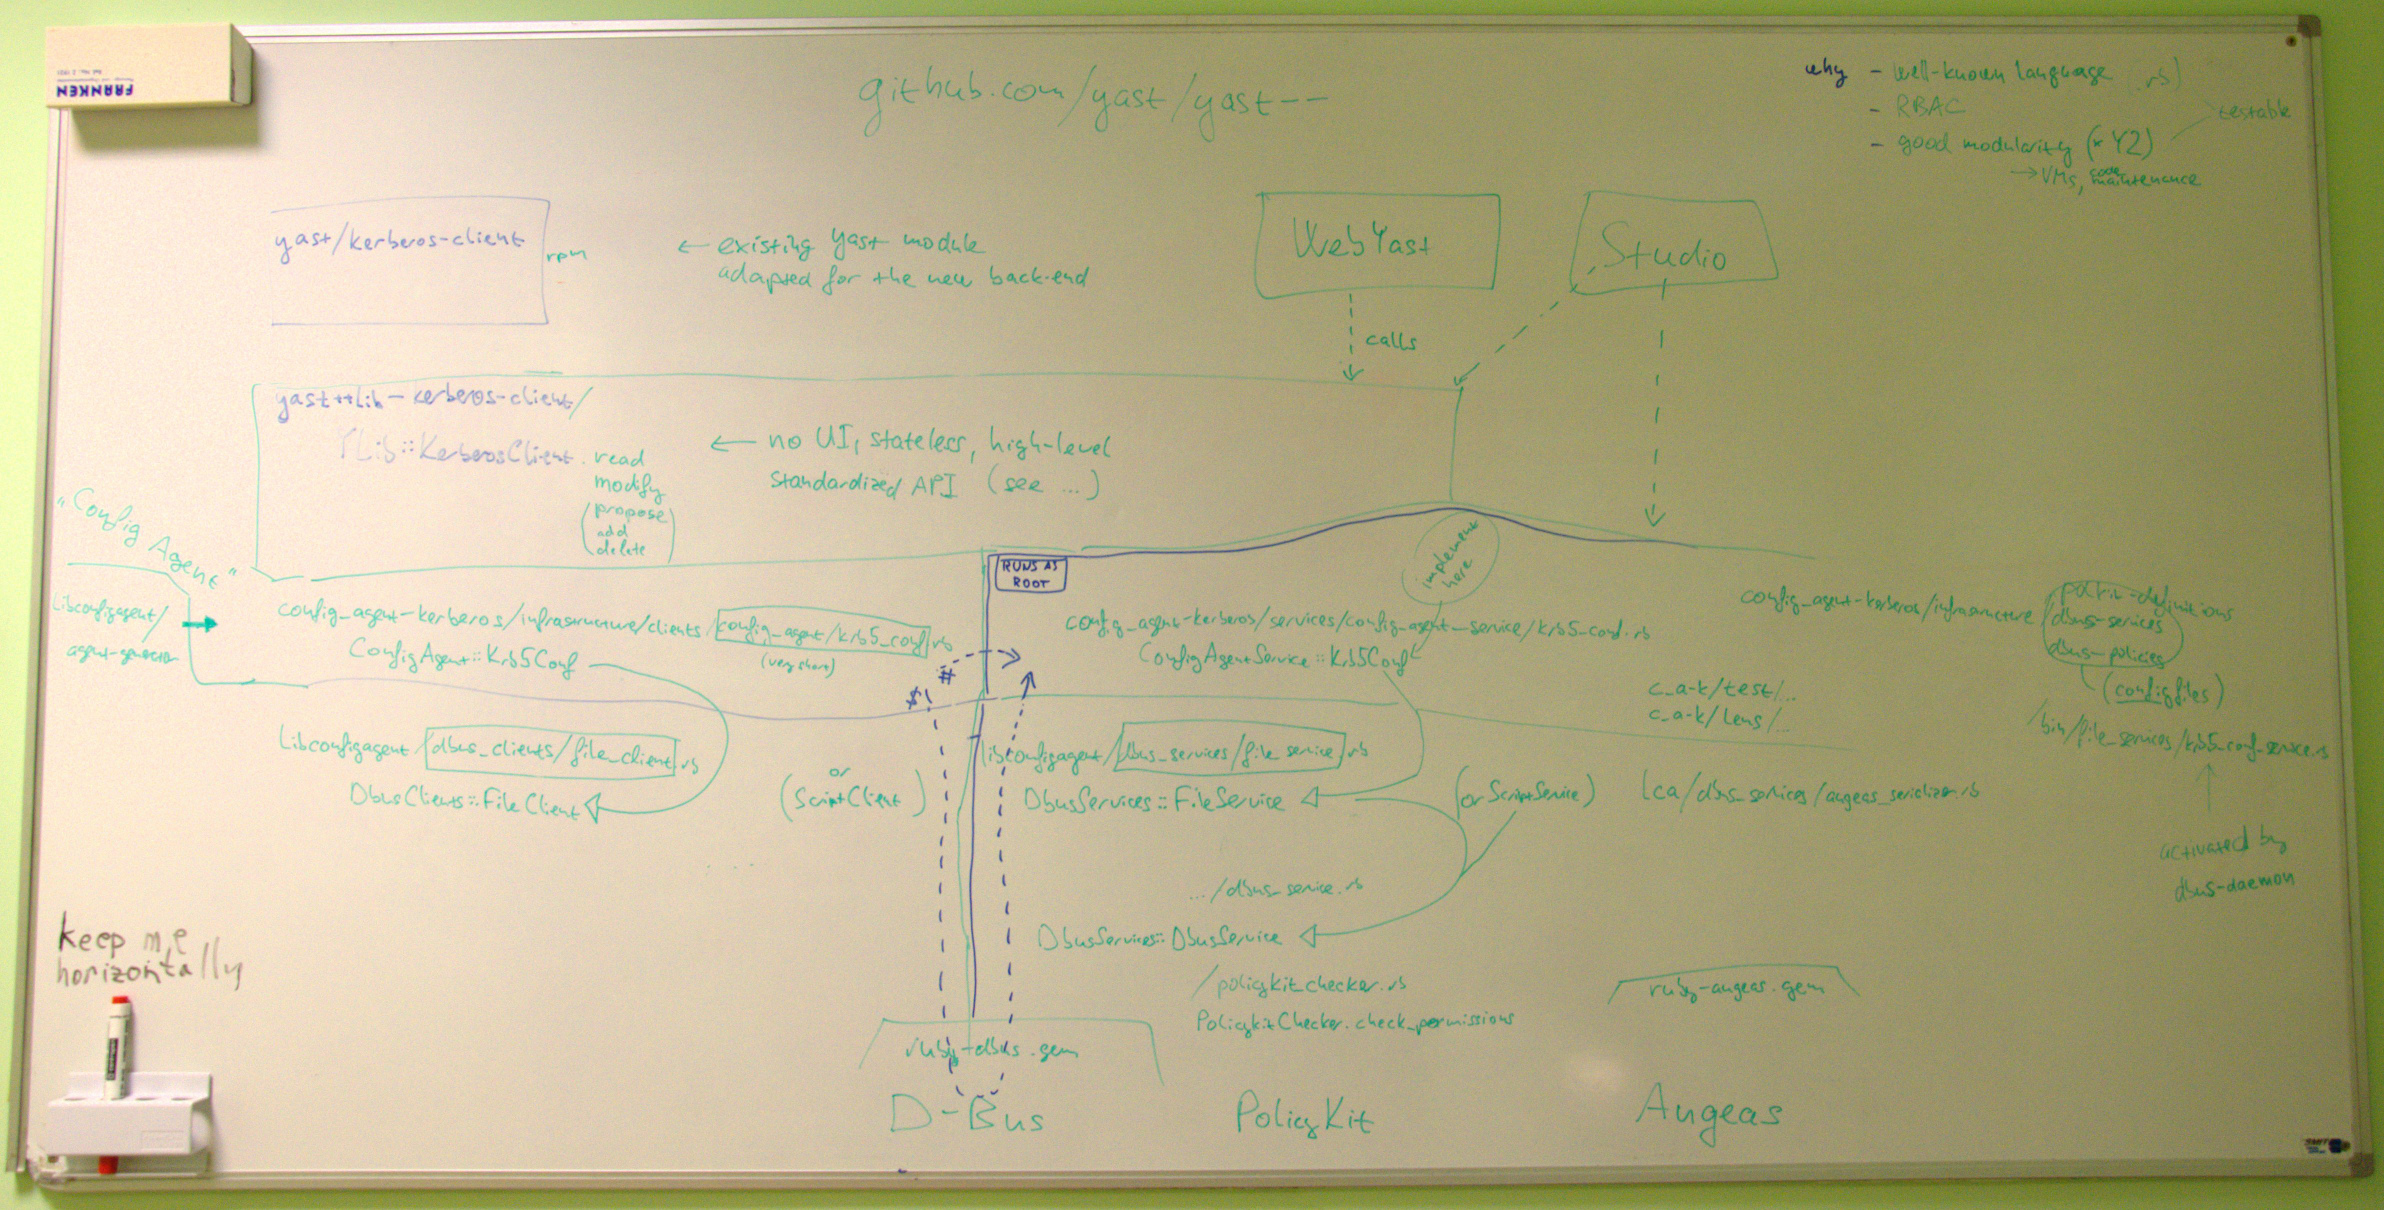 FRANKEN
github.com/yast/yast--
why - well-known language (.rb)
- RBAC
- good modularity (* Y2)
testable
→ VMs, code maintenance
yast/kerberos-client
rpm
← existing yast module
adapted for the new back-end
WebYast
Studio
calls
yast++lib-kerberos-client/
YLib::KerberosClient.read
modify
(propose
add
delete)
← no UI, stateless, high-level
standardized API (see ...)
"Config Agent"
RUNS AS
ROOT
implement
here
libconfigagent/
agent-generator
config_agent-kerberos/infrastructure/clients/config_agent/krb5_conf.rb
(very short)
ConfigAgent::Krb5Conf
config_agent-kerberos/services/config_agent_service/krb5_conf.rb
ConfigAgentService::Krb5Conf
config_agent-kerberos/infrastructure/
polkit-definitions
dbus-services
dbus-policies
(config files)
$
#
c_a-k/test/...
c_a-k/lens/...
/bin/file_services/krb5_conf_service.rb
activated by
dbus-daemon
libconfigagent/dbus_clients/file_client.rb
DbusClients::FileClient
(or
ScriptClient)
libconfigagent/dbus_services/file_service.rb
DbusServices::FileService
(or ScriptService)
lca/dbus_services/augeas_serializer.rb
.../dbus_service.rb
DbusServices::DbusService
/policykit_checker.rb
PolicykitChecker.check_permissions
ruby-augeas.gem
ruby-dbus.gem
D-Bus
PolicyKit
Augeas
keep me
horizontally